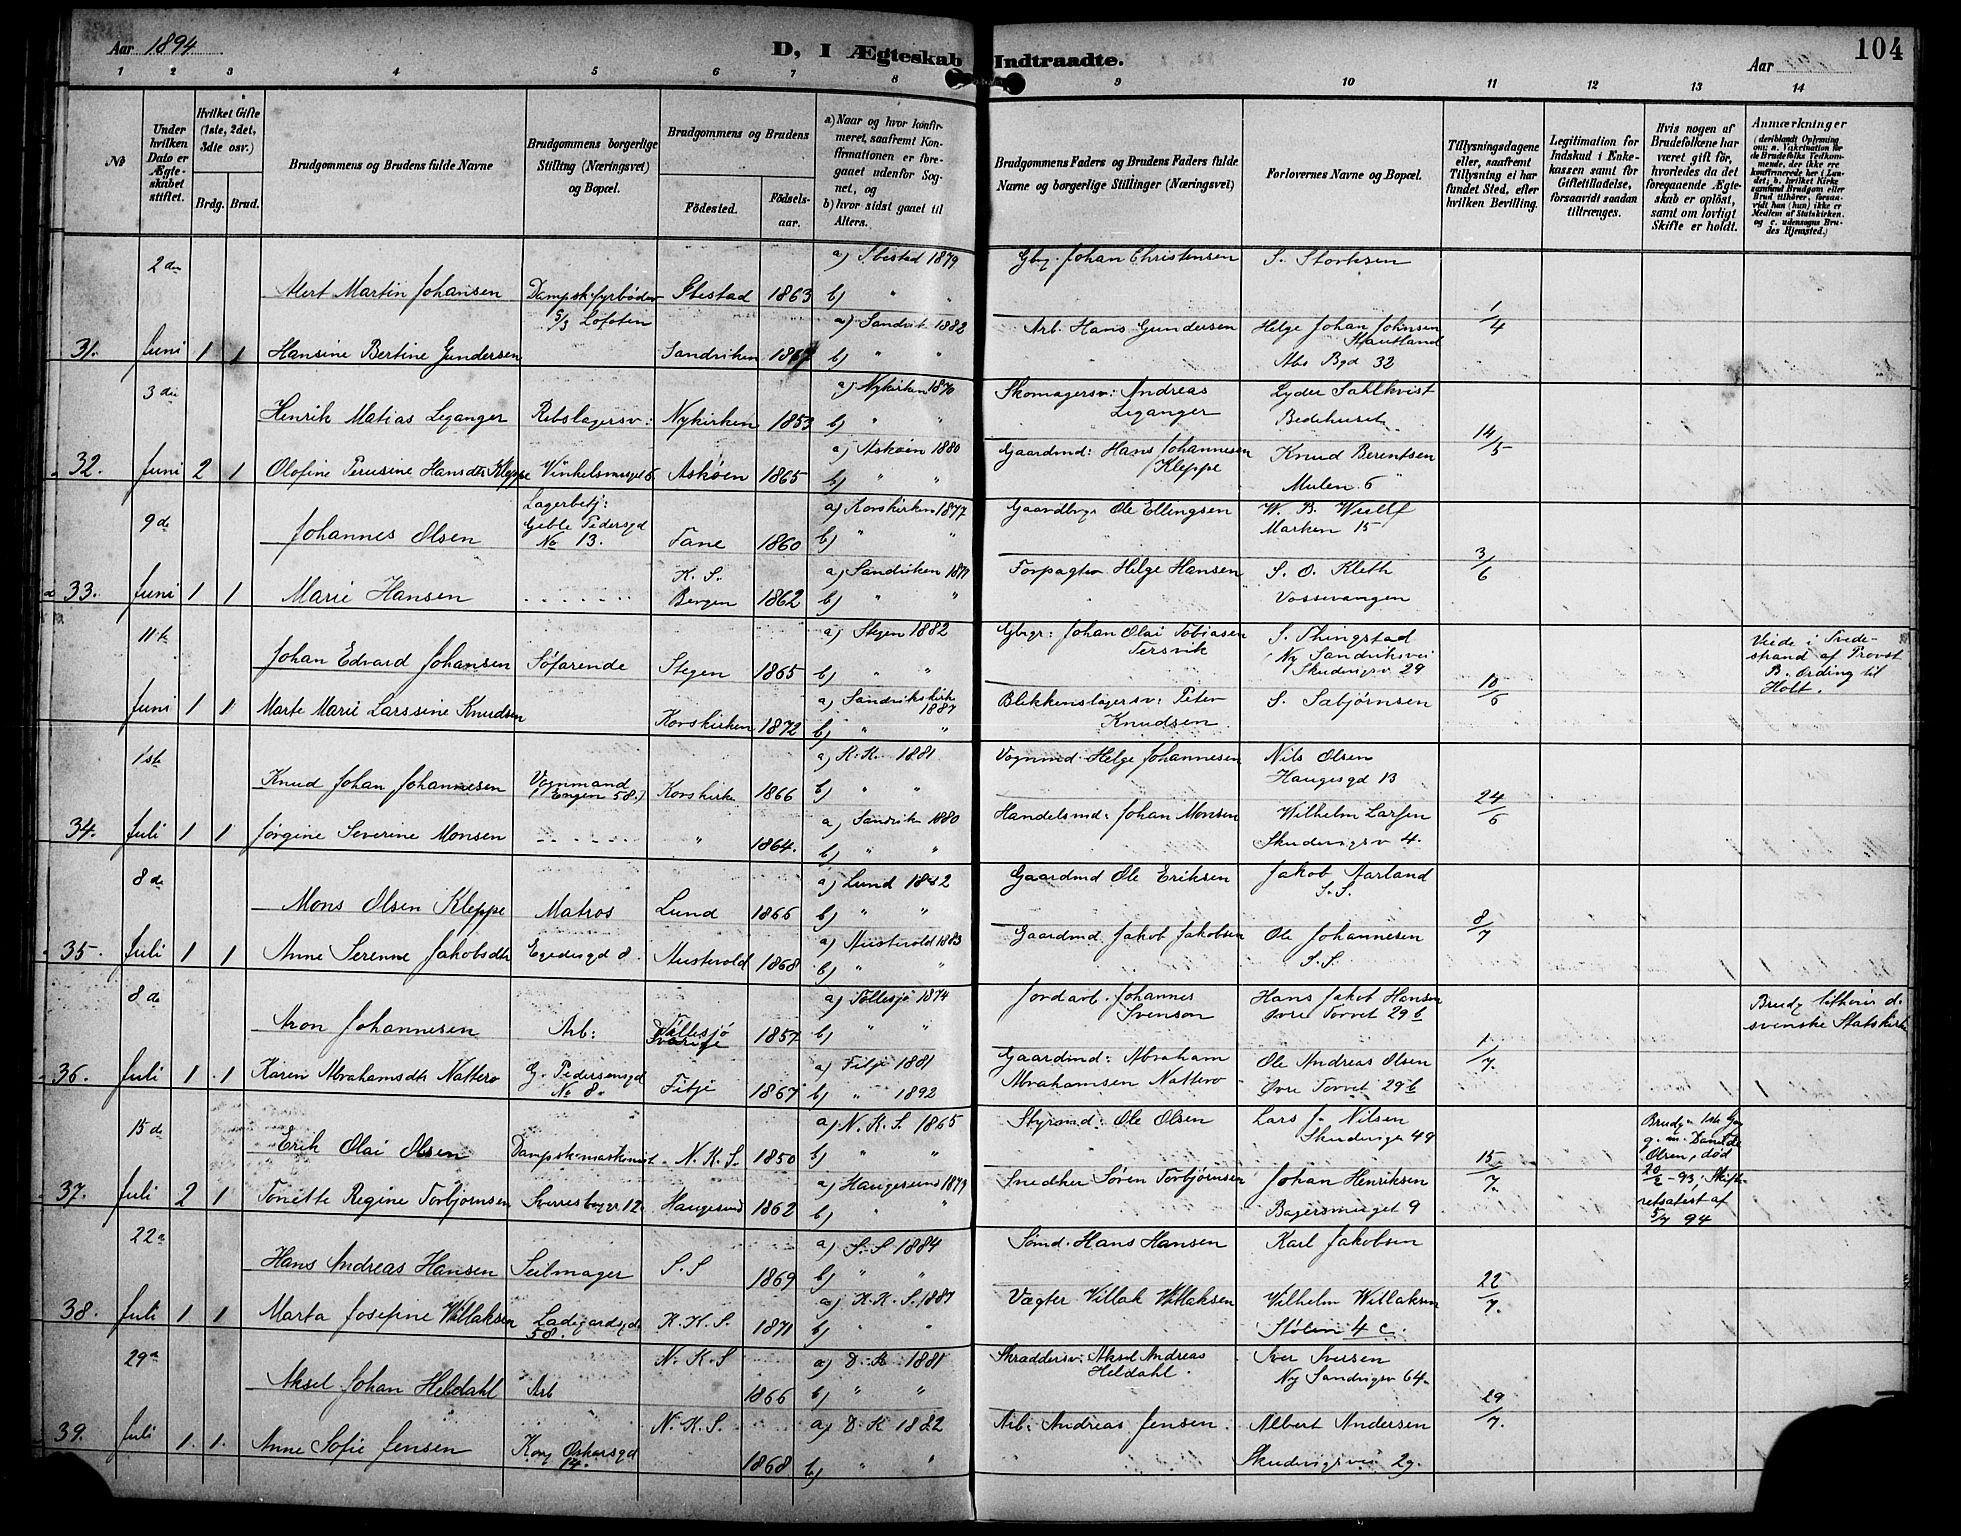 Aar 1894
D, I Ægteskab Indtraadte.
Aar
104
1 2 3 4 5 6 7 8 9 10 11 12 13 14
No
Under hvilken Dato er Ægteskabet stiftet.
Hvilket Gifte (1ste, 2det, 3die osv.)
Brdg. Brud.
Brudgommens og Brudens fulde Navne
Brudgommens borgerlige Stilling (Næringsvei) og Bopæl.
Brudgommens og Brudens
Fødested.
Fødselsaar.
a) Naar og hvor konfirmeret, saafremt Konfirmationen er foregaaet udenfor Sognet, og
b) hvor sidst gaaet til Alters.
Brudgommens Faders og Brudens Faders fulde Navne og borgerlige Stillinger (Næringsvei)
Forlovernes Navne og Bopæl.
Tillysningsdagene eller, saafremt Tillysning ei har fundet Sted, efter hvilken Bevilling.
Legitimation for Indskud i Enkekassen samt for Giftetilladelse, forsaavidt saadan tiltrænges.
Hvis nogen af Brudefolkene har været gift før, hvorledes da det foregaaende Ægteskab er opløst, samt om lovligt Skifte er holdt.
Anmærkninger
2den Alert Martin Johansen Dampsk.fyrbøder Ibestad 1863 a) Ibestad 1879 b) " " Gbr. Johan Christensen S. Storksen
5/3 Lofoten
31. Juni 1 1 Hansine Bertine Gundersen Sandviken 1867 a) Sandvik 1882 b) " " Arb. Hans Gundersen Helge Johan Johnsen 1/4
Bgd 32
3die Henrik Matias Leganger Rebslagersv: Nykirken 1853 a) Nykirken 1870 b) " " Skomagersv: Andreas Leganger Lyder Sahlkvist Bedehuset
32. Juni 2 1 Olofine Perusine Hansdtr Kleppe Vinkelsmuget 6. Askøen 1865 a) Askøen 1880 b) " " Gaardmd: Hans Johannesen Kleppe Knud Berentsen Mulen 6 14/5
9de Johannes Olsen Lagerbetj: Geble Pedersgd No 13. Fane 1860 a) Korskirken 1877 b) " " Gaardbrgr Ole Ellingsen W. B. Wulff Marken 15
33. Juni 1 1 Marie Hansen K. S. Bergen 1862 a) Sandviken 1877 b) " " Forpagter Helge Hansen S. O. Kleth Vossevangen 3/6
11te Johan Edvard Johansen Søfarende Stegen 1865 a) Stegen 1882 b) " " Gbgr: Johan Olai Tobiasen Tersvik S. Thingstad Ny Sandviksvei Skudevigsv 29
Viede i Tvedestrand af Provst B. Ording til Holt.
Juni 1 1 Marte Marie Larssine Knudsen Korskirken 1872 a) Sandvikskirk 1887 b) " " Blikkenslagersv: Peter Knudsen S. Sabjørnsen 10/6
1ste Knud Johan Johannesen Vognmand (Engen 58.) Korskirke 1866 a) K. K. 1881 b) " " Vognmd. Helge Johannesen Nils Olsen Haugesgd 13
34. Juli 1 1 Jørgine Severine Monsen " 1864. a) Sandvike 1880 b) " " Handelsmd: Johan Monsen Wilhelm Larsen Skudevigsv 4. 24/6
8de Mons Olsen Kleppe Matros Lund 1866 a) Lund 1882 b) " " Gaardmd Ole Eriksen Jakob Aarland S. S.
35. Juli 1 1 Anne Serenne Jakobsdtr Egedesgd 8. Austevold 1868 a) Austevold 1883 b) " " Gaardmd Jakob Jakobsen Ole Johannesen S. S. 8/7
8de Aron Johannesen Arb: Töllesjö Sverige 1857 a) Töllesjö 1874 b) " " Jordarb. Johannes Svenson Hans Jakob Hansen Øvre Torvet 29 b
Brudg tilhører d. svenske Statskirke
36. Juli 1 1 Karen Abrahamsdtr Nattero G. Pedersensgd No 8. Fitje 1867 a) Fitje 1881 b) " 1892 Gaardmd: Abraham Abrahamsen Nattero Ole Andreas Olsen Øvre Torvet 29 b 1/7.
15de Erik Olai Olsen Dampsk.maskinist N. K. S. 1850 a) N. K. S. 1865 b) " " Styrmd: Ole Olsen Lars J. Nilsen Skudevigs 49
Brudg. 1ste G. g. m. Olsen, død 20/2 - 93, Skifteretsattest af 5/7 94
37. Juli 2 1 Tonette Regine Torbjørnsen Sverresborgv. 12. Haugesund 1862 a) Haugesund 1879 b) " " Snedker Søren Torbjørnsen Johan Henriksen Bagersmuget 9 15/7.
22de Hans Andreas Hansen Seilmager S. S 1869 a) S. S 1884 b) " " Sømd. Hans Hansen Karl Jakobsen
38. Juli 1 1 Marta Josefine Willaksen Ladegardsgd 58. K. K. S. 1871 a) K. K. S. 1887 b) " " Vægter Villak Willaksen Wilhelm Willaksen Stølen 4 c. 22/7.
29de Aksel Johan Heldahl Arb N. K. S 1866 a) D. K 1881 b) " " Skræddersv: Aksel Andreas Heldahl. Iver Iversen Ny Sandvigsv 64.
39. Juli 1. 1. Anne Sofie Jensen Kong Oskarsgd 14. N. K. S. 1868 a) D. K 1882 b) " " Arb: Andreas Jensen. Albert Andersen Skudevigsvei 29. 29/7.